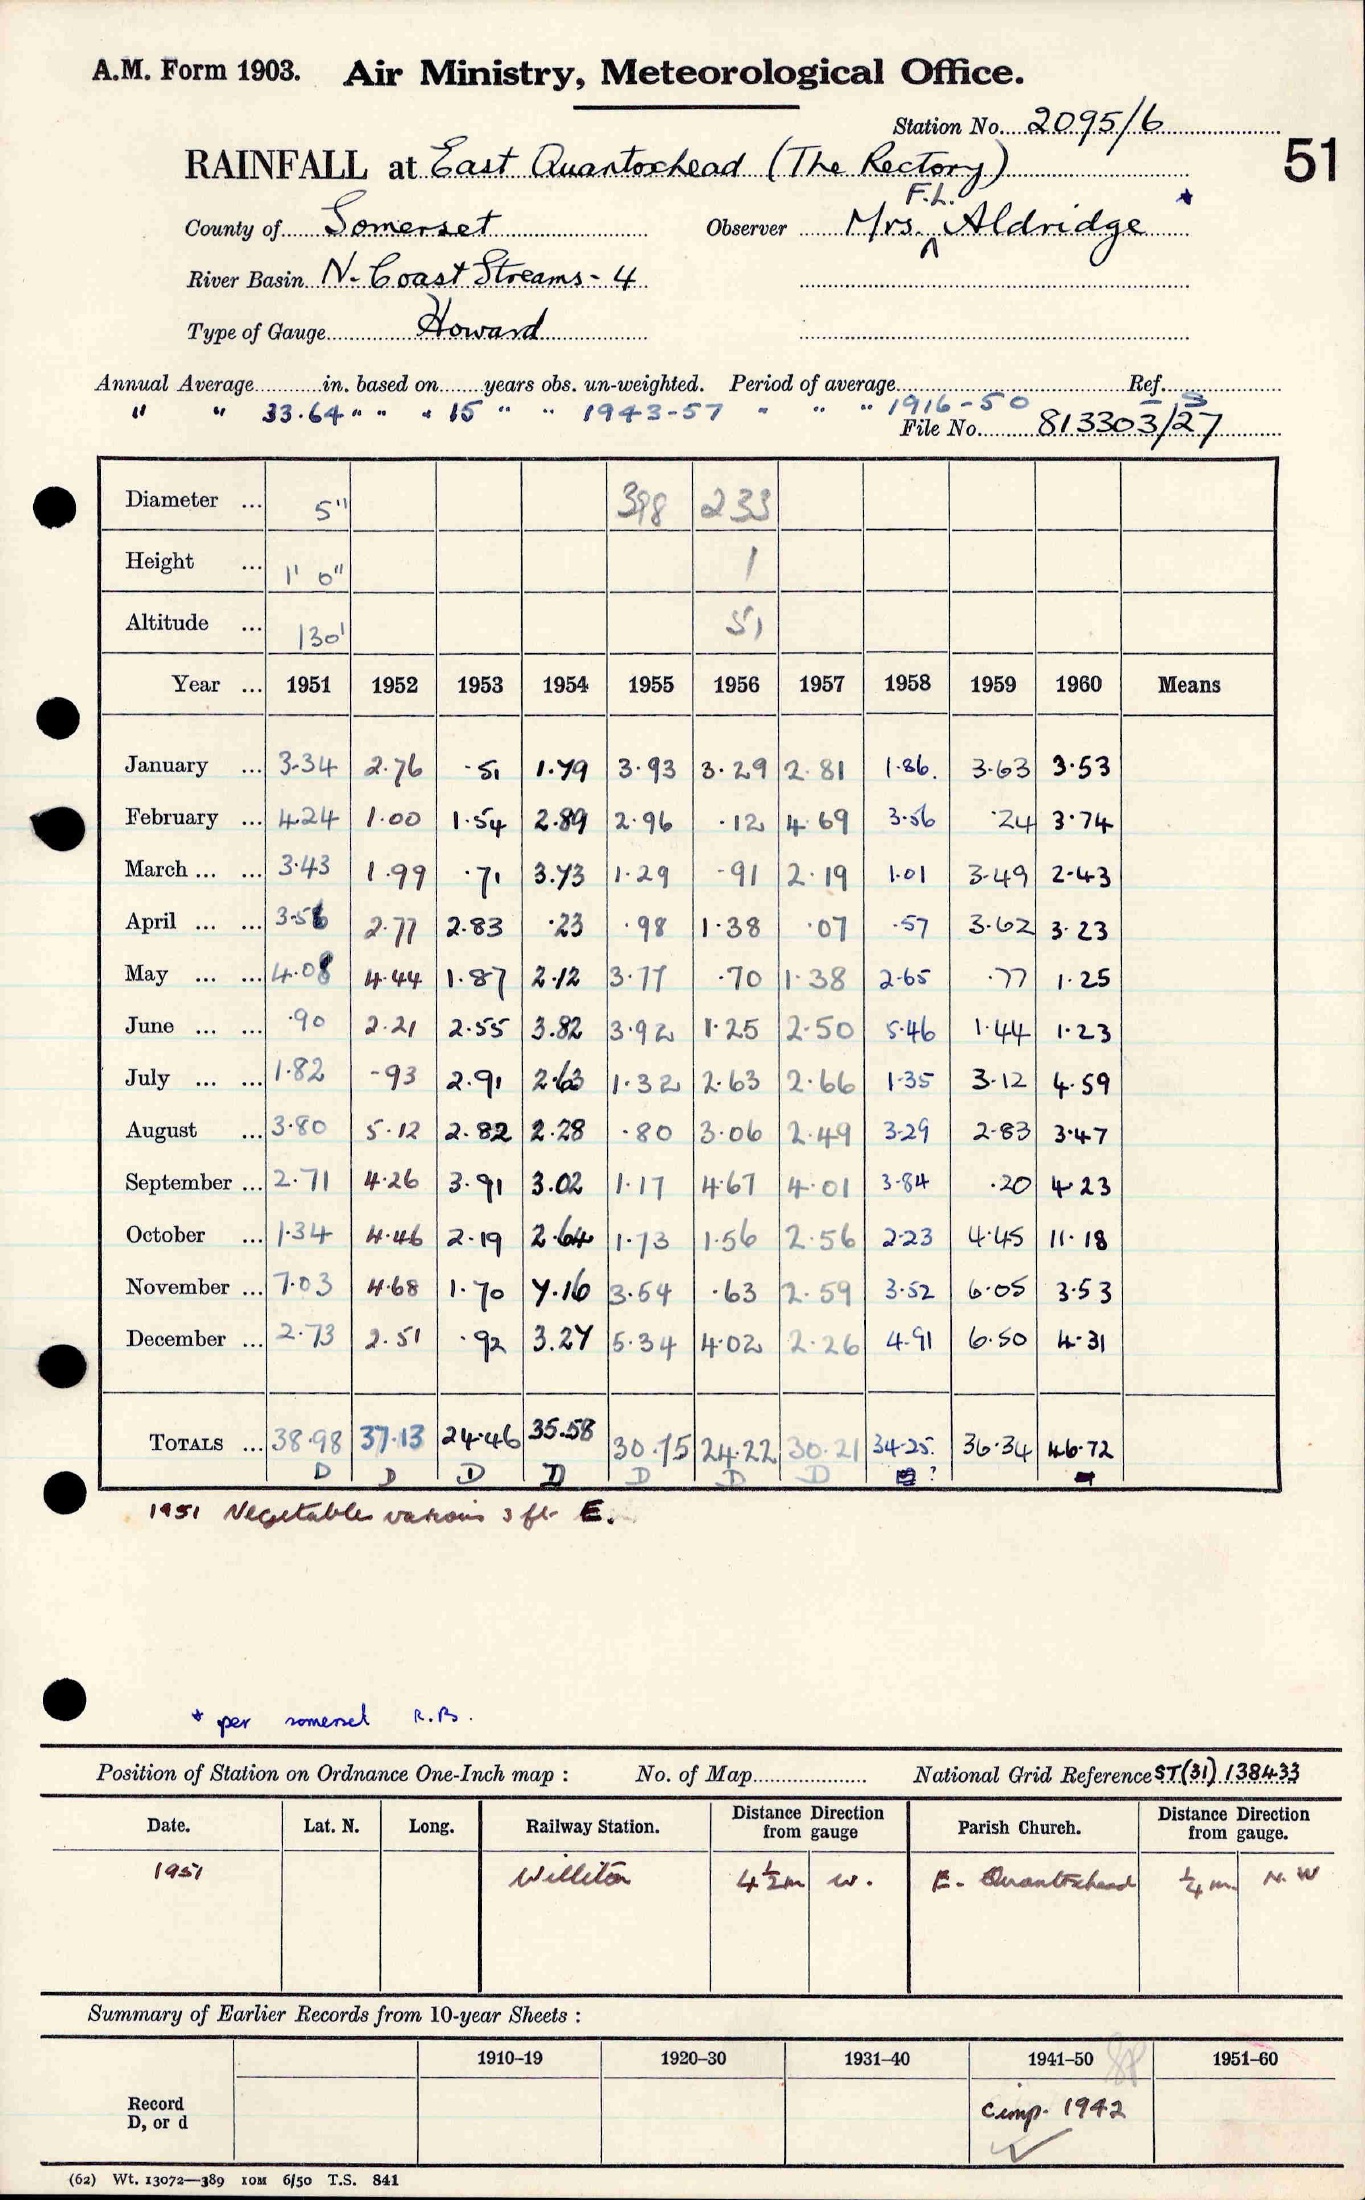 A.M. Form 1903. Air Ministry, Meteorological Office.
Station No. 2095/6
RAINFALL at East Quantoxhead (The Rectory) 51
F.L. *
County of Somerset Observer Mrs. ^ Aldridge
River Basin N. Coast Streams - 4
Type of Gauge Howard
Annual Average in. based on years obs. un-weighted. Period of average Ref.
" " 33.64 " " " 15 " " 1943-57 " " " 1916-50
File No. 813303/27
Diameter ... 5" 398 233
Height ... 1' 0" 1
Altitude ... 130' 51
Year ... 1951 1952 1953 1954 1955 1956 1957 1958 1959 1960 Means
January ... 3.34 2.76 .51 1.79 3.93 3.29 2.81 1.86. 3.63 3.53
February ... 4.24 1.00 1.54 2.89 2.96 .12 4.69 3.56 .24 3.74
March ... ... 3.43 1.99 .71 3.73 1.29 .91 2.19 1.01 3.49 2.43
April ... ... 3.56 2.77 2.83 .23 .98 1.38 .07 .57 3.62 3.23
May ... ... 4.08 4.44 1.87 2.12 3.77 .70 1.38 2.65 .77 1.25
June ... ... .90 2.21 2.55 3.82 3.92 1.25 2.50 5.46 1.44 1.23
July ... ... 1.82 .93 2.91 2.63 1.32 2.63 2.66 1.35 3.12 4.59
August ... 3.80 5.12 2.82 2.28 .80 3.06 2.49 3.29 2.83 3.47
September ... 2.71 4.26 3.91 3.02 1.17 4.67 4.01 3.84 .20 4.23
October ... 1.34 4.46 2.19 2.64 1.73 1.56 2.56 2.23 4.45 11.18
November ... 7.03 4.68 1.70 7.16 3.54 .63 2.59 3.52 6.05 3.53
December ... 2.73 2.51 .92 3.27 5.34 4.02 2.26 4.91 6.50 4.31
TOTALS ... 38.98 37.13 24.46 35.58 30.75 24.22 30.21 34.25. 36.34 46.72
D D D D D D D ?
1951 Vegetables various 3 ft. E.
* per somerset R.B.
Position of Station on Ordnance One-Inch map : No. of Map National Grid Reference ST(31) 138433
Date. Lat. N. Long. Railway Station. Distance Direction from gauge Parish Church. Distance Direction from gauge.
1951 Williton 4½m W. E. Quantoxhead ¼ m. N.W
Summary of Earlier Records from 10-year Sheets :
1910–19 1920–30 1931–40 1941–50 1951–60
Record
D, or d
Comp. 1942
(62) Wt. 13072—389 10M 6/50 T.S. 841